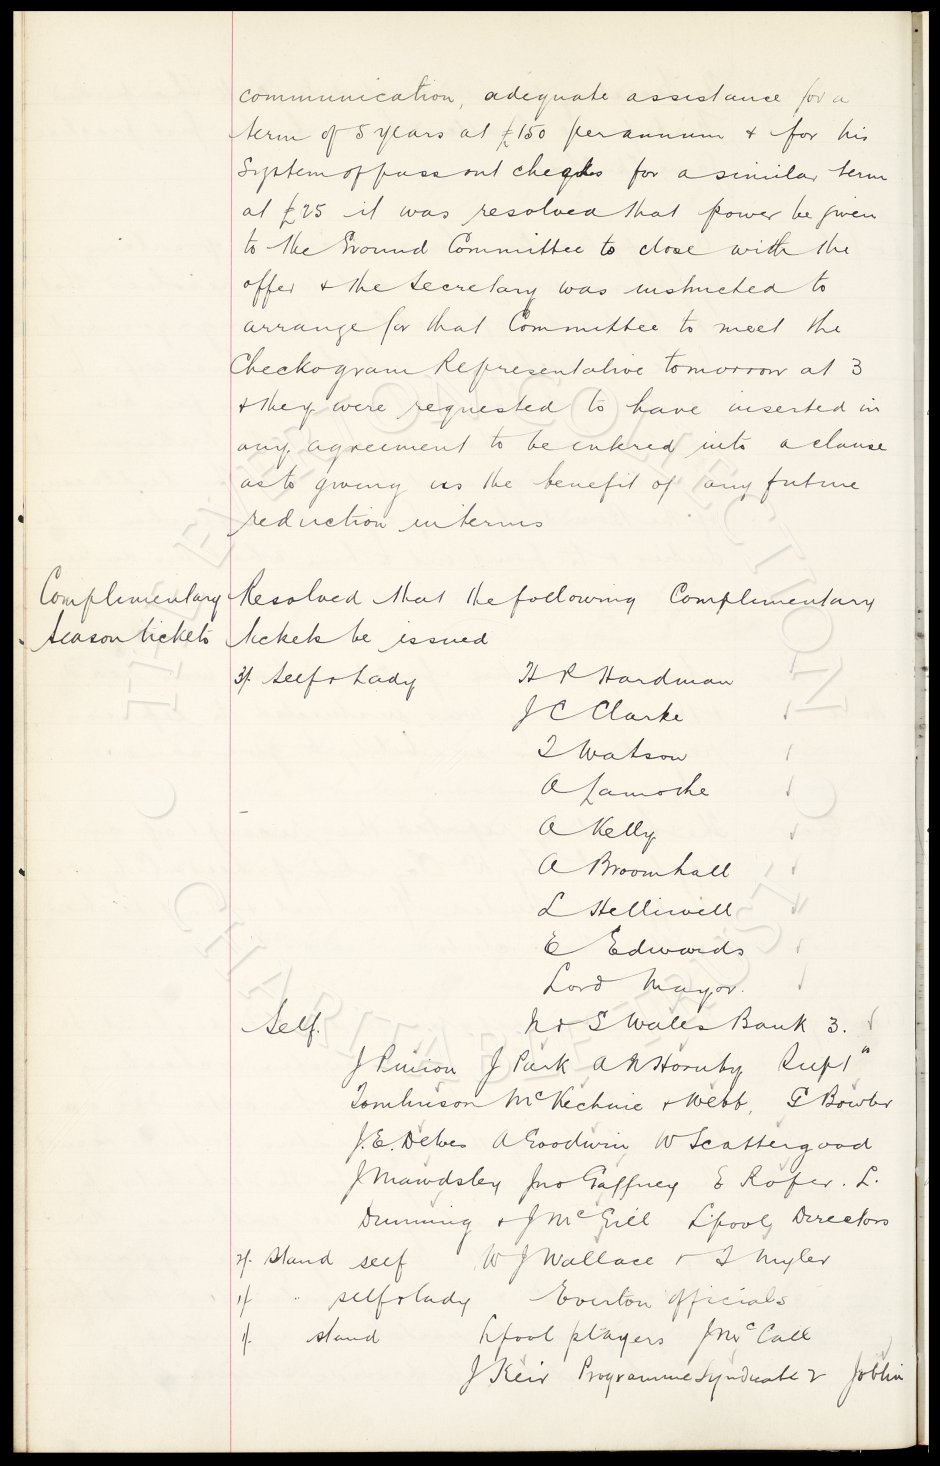 communication, adequate assistance for a
term of 5 years at £150 per annum & for his
System of pass out checks for a similar term
at £25 it was resolved that power be given
to the Ground Committee to close with the
offer & the Secretary was instructed to
arrange for that Committee to meet the
Checkogram Representative tomorrow at 3
& they were requested to have inserted in
any agreement to be entered into a clause
as to giving us the benefit of any future
reduction in terms
Complimentary Resolved that the following Complimentary
Season tickets tickets be issued
3/- Self & Lady H R Hardman
J C Clarke
T Watson
A Lamothe
A Kelly
A Broomhall
L Helliwell
E Edwards
Lord Mayor.
Self. N & S Wales Bank 3.
J Pinion J Park A N Hornby Supts
Tomlinson McKechnie & Webb, G Bowler
J.E. Delves A Goodwin W Scattergood
J Mawdsley Jno Gaffney E Roper. L.
Dunning & J McGill Lpool Directors
2/- Stand self W J Wallace & T Myler
1/- " self & lady Everton officials
1/- stand Lpool players J McCall
J Keir Programme Syndicate 2 Joblin
THE EVERTON COLLECTION
CHARITABLE TRUST